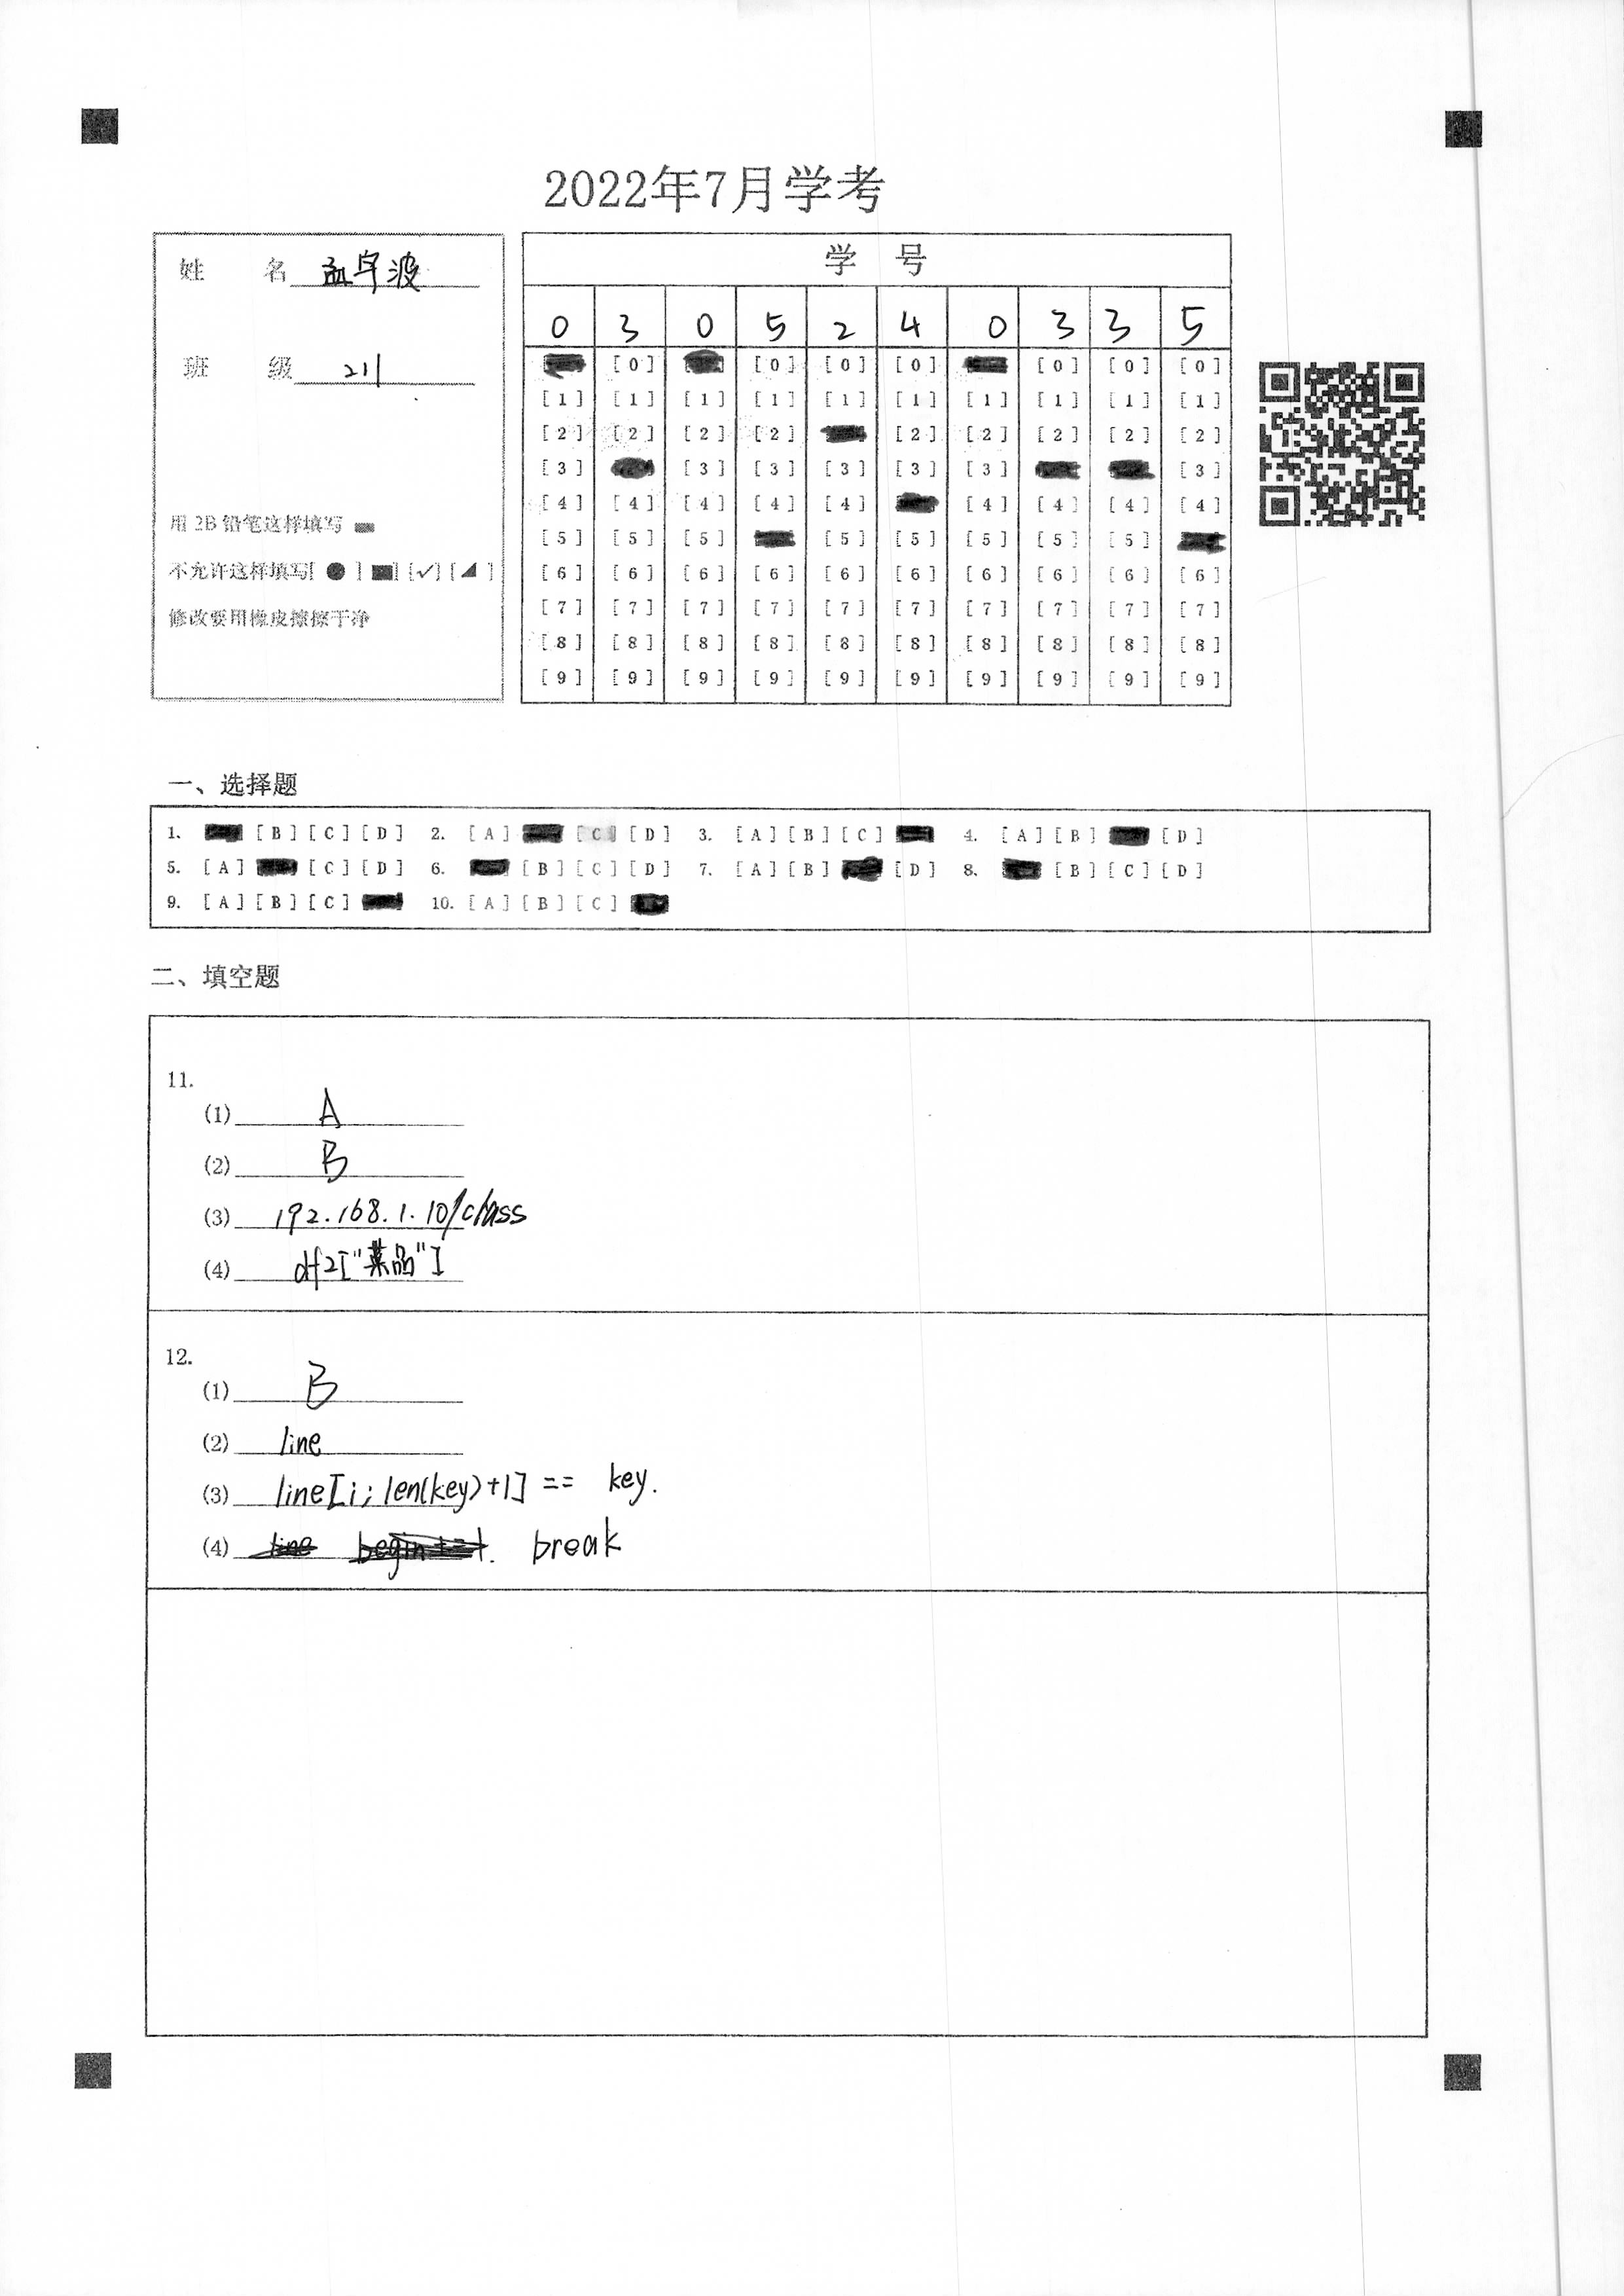 2022年7月学考
姓 名 孟宇波
班 级 211
用 2B 铅笔这样填写
不允许这样填写[ ● ] [■] [✓] [◢ ]
修改要用橡皮擦擦干净
学 号
0 3 0 5 2 4 0 3 3 5
[0] [0] [0] [0] [0] [0] [0]
[1] [1] [1] [1] [1] [1] [1] [1] [1] [1]
[2] [2] [2] [2] [2] [2] [2] [2] [2]
[3] [3] [3] [3] [3] [3] [3]
[4] [4] [4] [4] [4] [4] [4] [4] [4]
[5] [5] [5] [5] [5] [5] [5] [5]
[6] [6] [6] [6] [6] [6] [6] [6] [6] [6]
[7] [7] [7] [7] [7] [7] [7] [7] [7] [7]
[8] [8] [8] [8] [8] [8] [8] [8] [8] [8]
[9] [9] [9] [9] [9] [9] [9] [9] [9] [9]
一、选择题
1. [B] [C] [D] 2. [A] [C] [D] 3. [A] [B] [C] 4. [A] [B] [D]
5. [A] [C] [D] 6. [B] [C] [D] 7. [A] [B] [D] 8. [B] [C] [D]
9. [A] [B] [C] 10. [A] [B] [C]
二、填空题
11.
(1) A
(2) B
(3) 192.168.1.10/class
(4) df2["菜品"]
12.
(1) B
(2) line
(3) line[i; len(key)+1] == key.
(4) break